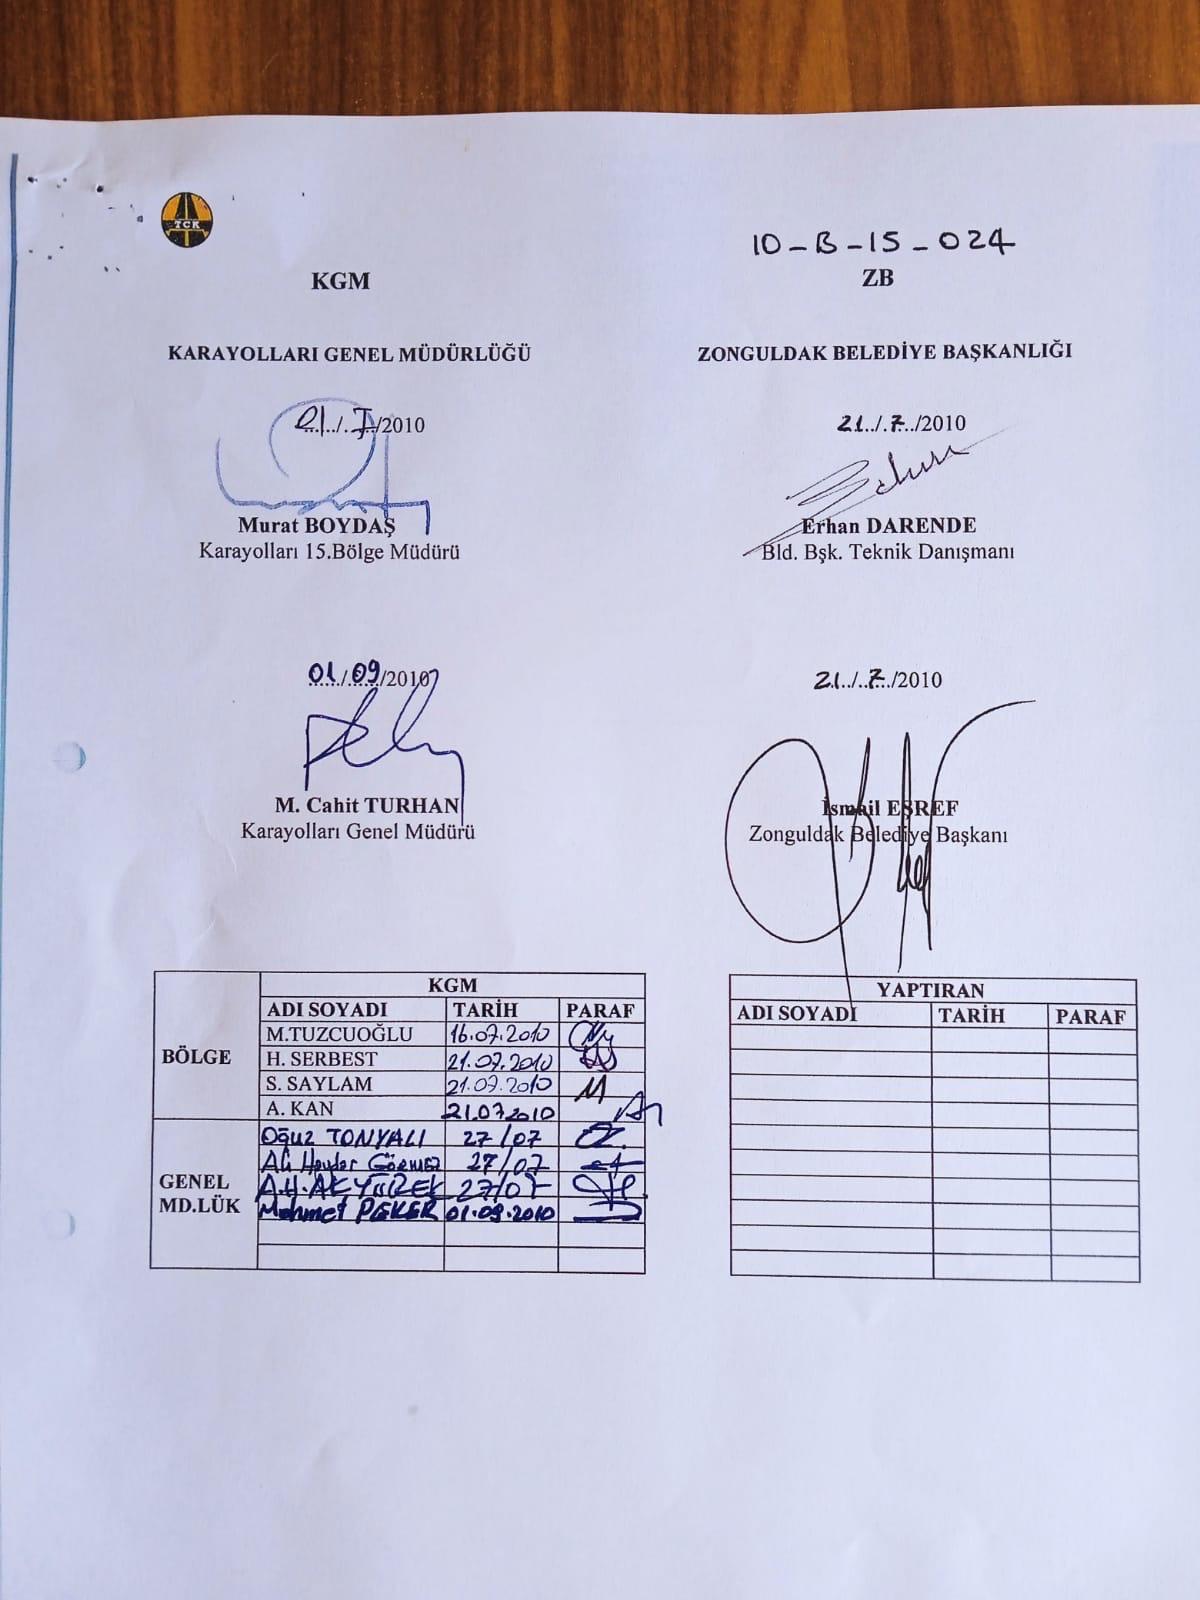 TCK
10-B-15-024
KGM
ZB
KARAYOLLARI GENEL MÜDÜRLÜĞÜ
ZONGULDAK BELEDİYE BAŞKANLIĞI
21../.7../2010
21../.7../2010
Murat BOYDAŞ
Karayolları 15.Bölge Müdürü
Erhan DARENDE
Bld. Bşk. Teknik Danışmanı
01./.09./2010
21../..7../2010
M. Cahit TURHAN
Karayolları Genel Müdürü
İsmail EŞREF
Zonguldak Belediye Başkanı
KGM
ADI SOYADI TARİH PARAF
BÖLGE
M.TUZCUOĞLU 16.07.2010
H. SERBEST 21.07.2010
S. SAYLAM 21.07.2010
A. KAN 21.07.2010
GENEL MD.LÜK
Oğuz TONYALI 27/07
Ali Haydar Görmez 27/07
A.H. AKYÜREK 27/07
Mehmet PEKER 01.09.2010
YAPTIRAN
ADI SOYADI TARİH PARAF